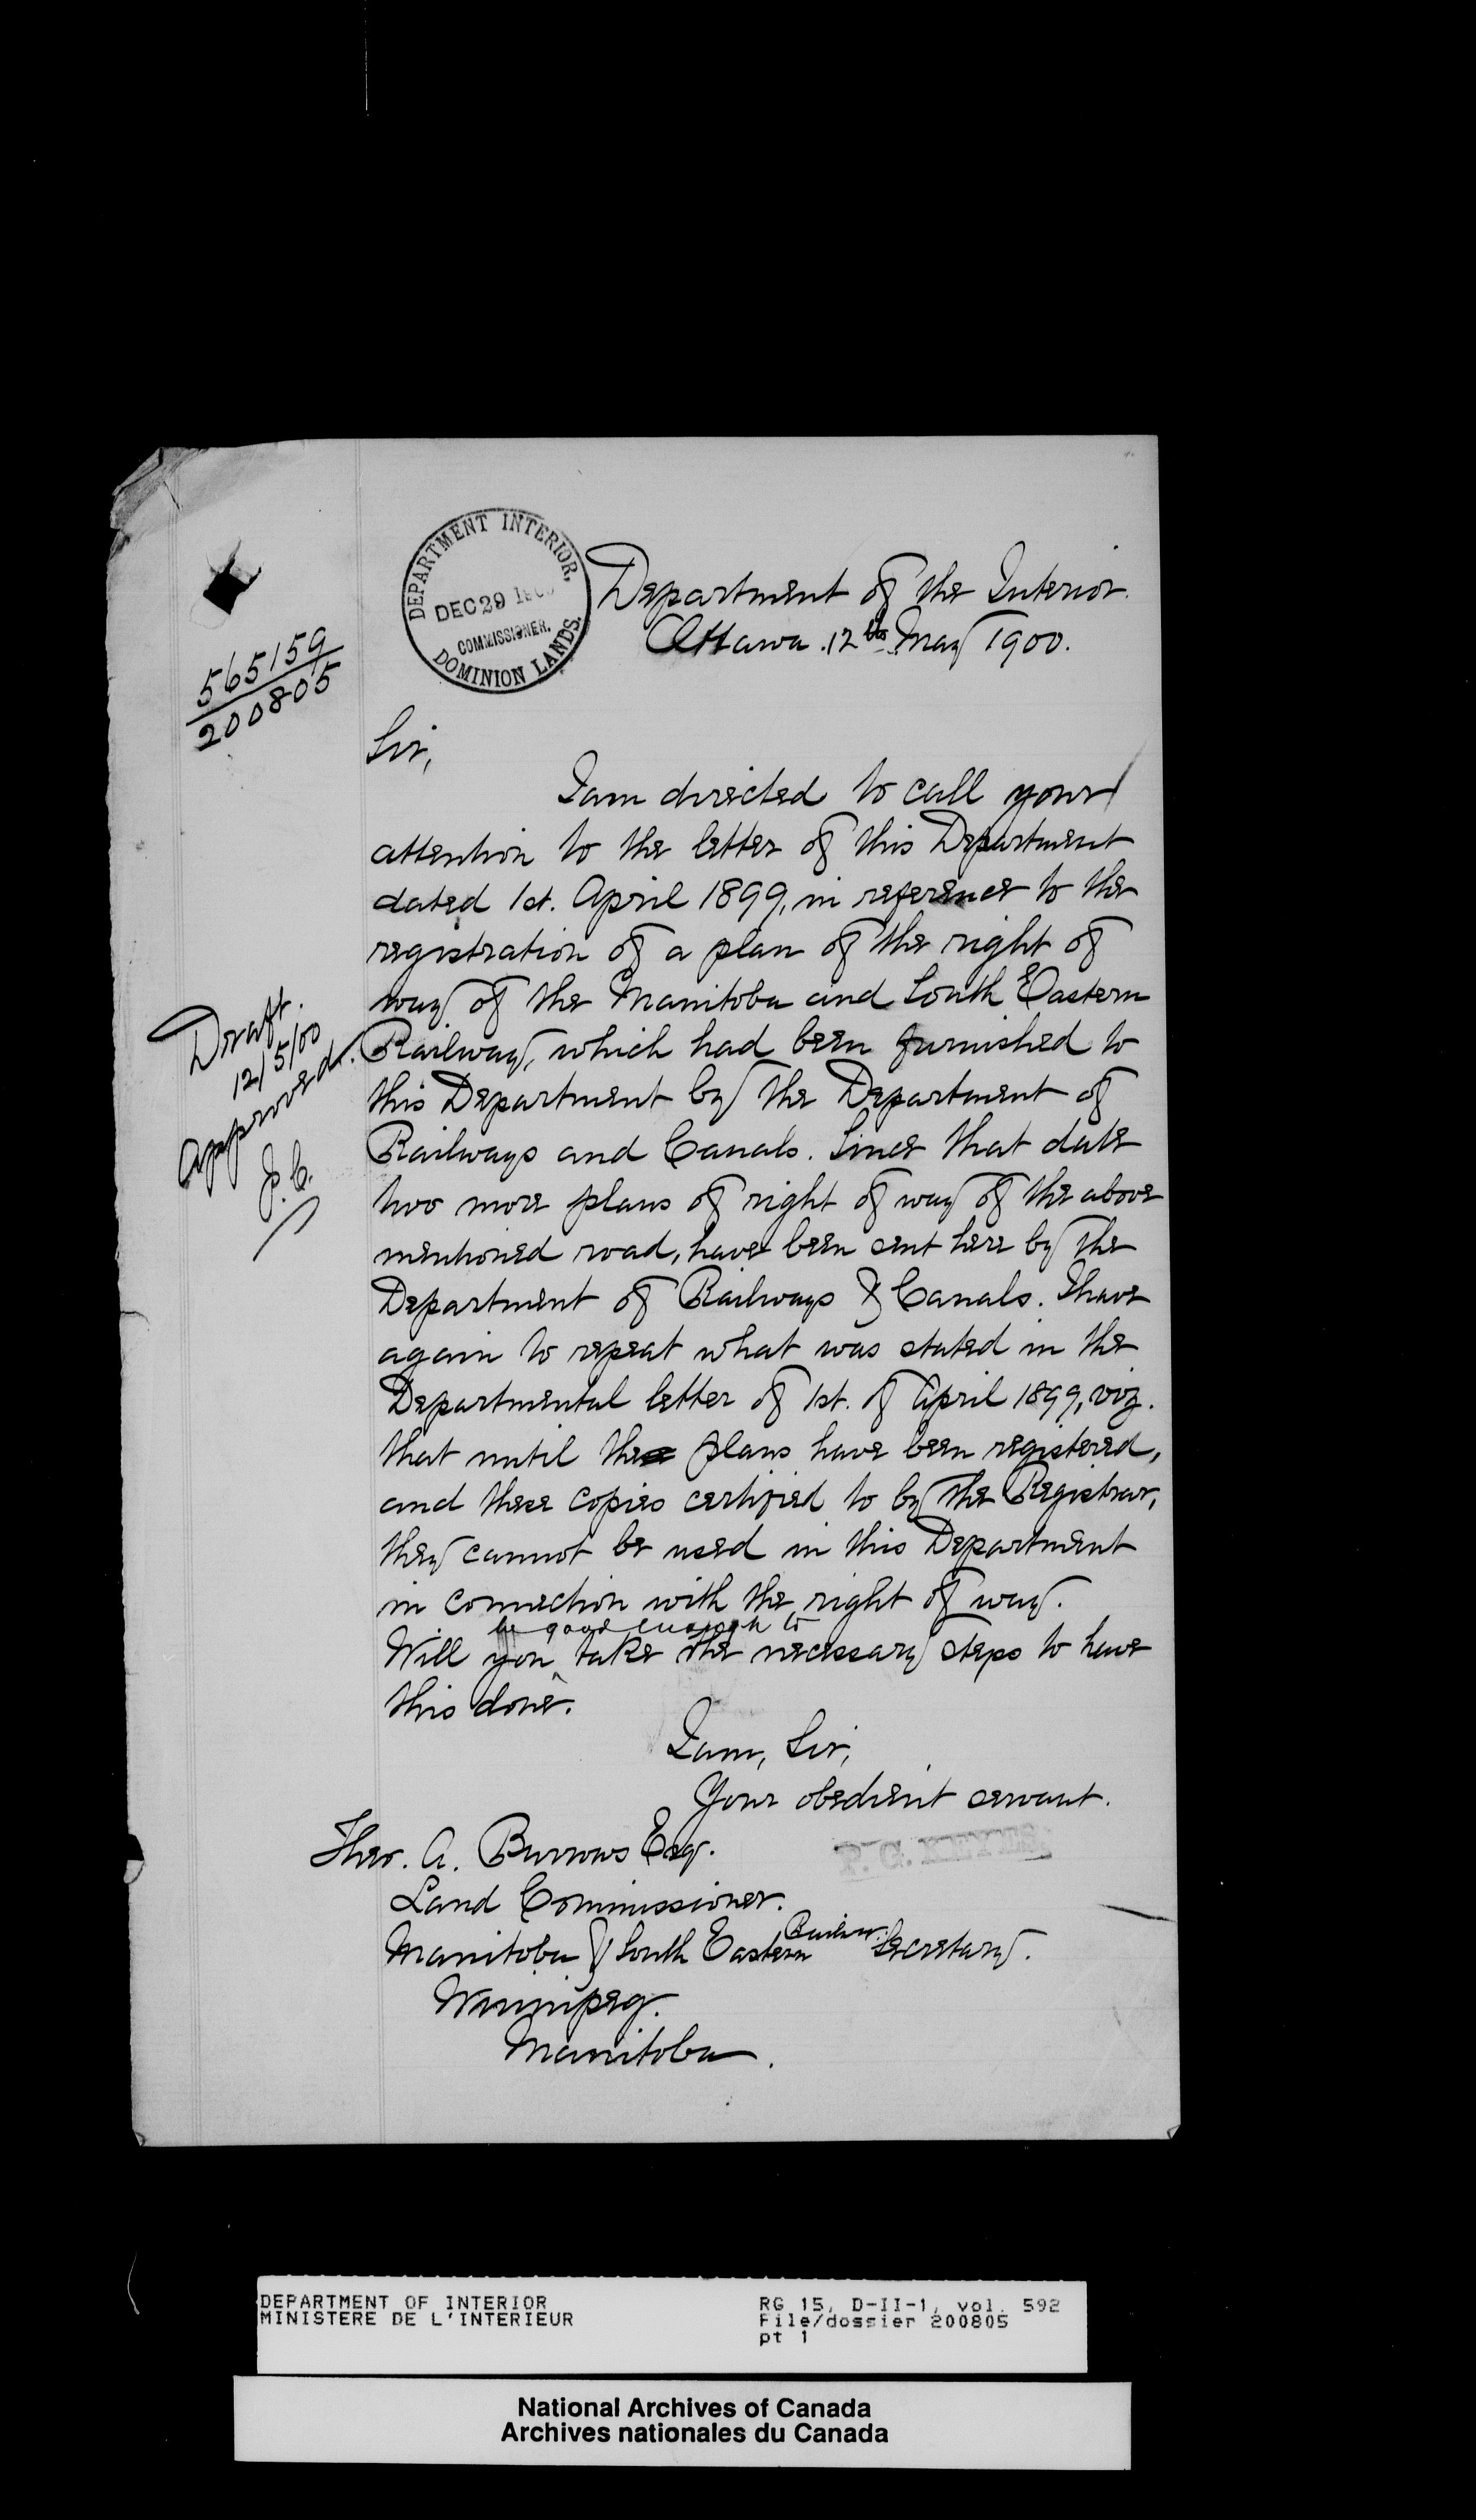 DEPARTMENT INTERIOR,
DEC 29 1900
COMMISSIONER.
DOMINION LANDS.
Department of the Interior.
Ottawa. 12th May 1900.
565159
200805
Sir,
I am directed to call your
attention to the letter of this Department
dated 1st. April 1899, in reference to the
registration of a plan of the right of
way of the Manitoba and South Eastern
Railway, which had been furnished to
this Department by the Department of
Railways and Canals. Since that date
two more plans of right of way of the above
mentioned road, have been sent here by the
Department of Railways & Canals. I have
again to repeat what was stated in the
Departmental letter of 1st. of April 1899, viz.
that until the plans have been registered,
and these copies certified to by the Registrar,
they cannot be used in this Department
in connection with the right of way.
be good enough to
Will you take the necessary steps to have
this done.
Draft.
12/5/00
Approved.
P.C.
I am, Sir,
Your obedient servant.
P. G. KEYES,
Secretary.
Theo. A. Burrows Esq.
Land Commissioner.
Manitoba & South Eastern Railway.
Winnipeg.
Manitoba.
DEPARTMENT OF INTERIOR
MINISTERE DE L'INTERIEUR
RG 15, D-II-1, vol. 592
File/dossier 200805
pt 1
National Archives of Canada
Archives nationales du Canada